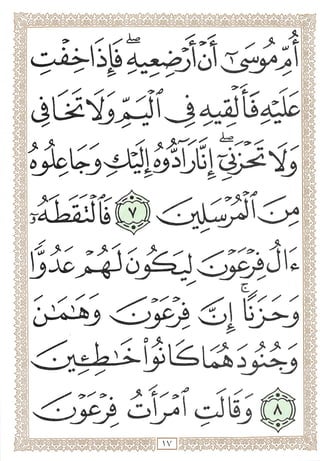 أُمِّ مُوسَىٰٓ أَنْ أَرْضِعِيهِۖ فَإِذَا خِفْتِ
عَلَيْهِ فَأَلْقِيهِ فِى ٱلْيَمِّ وَلَا تَخَافِى
وَلَا تَحْزَنِىٓۖ إِنَّا رَآدُّوهُ إِلَيْكِ وَجَاعِلُوهُ
مِنَ ٱلْمُرْسَلِينَ ٧ فَٱلْتَقَطَهُۥٓ
ءَالُ فِرْعَوْنَ لِيَكُونَ لَهُمْ عَدُوًّا
وَحَزَنًاۗ إِنَّ فِرْعَوْنَ وَهَـٰمَـٰنَ
وَجُنُودَهُمَا كَانُوا۟ خَـٰطِـِٔينَ
٨ وَقَالَتِ ٱمْرَأَتُ فِرْعَوْنَ
١٧